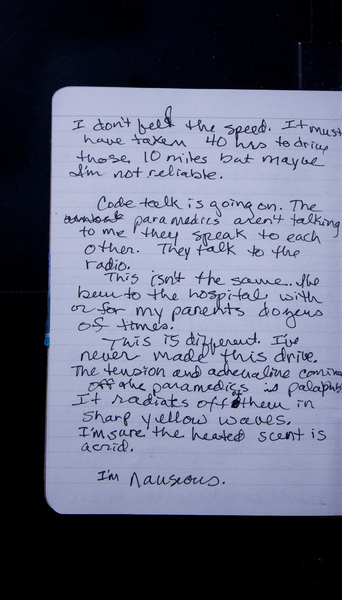 I don't feel the speed. It must
have taken 40 hrs to drive
those 10 miles but maybe
I'm not reliable.
Code talk is going on. The
paramedics aren't talking
to me they speak to each
other. They talk to the
radio.
This isn't the same. I've
been to the hospital with
or for my parents dozens
of times.
This is different. I've
never made this drive.
The tension and adrenaline coming
off the paramedics is palapable
It radiates off of them in
sharp yellow waves.
I'm sure the heated scent is
acrid.
I'm nauseous.